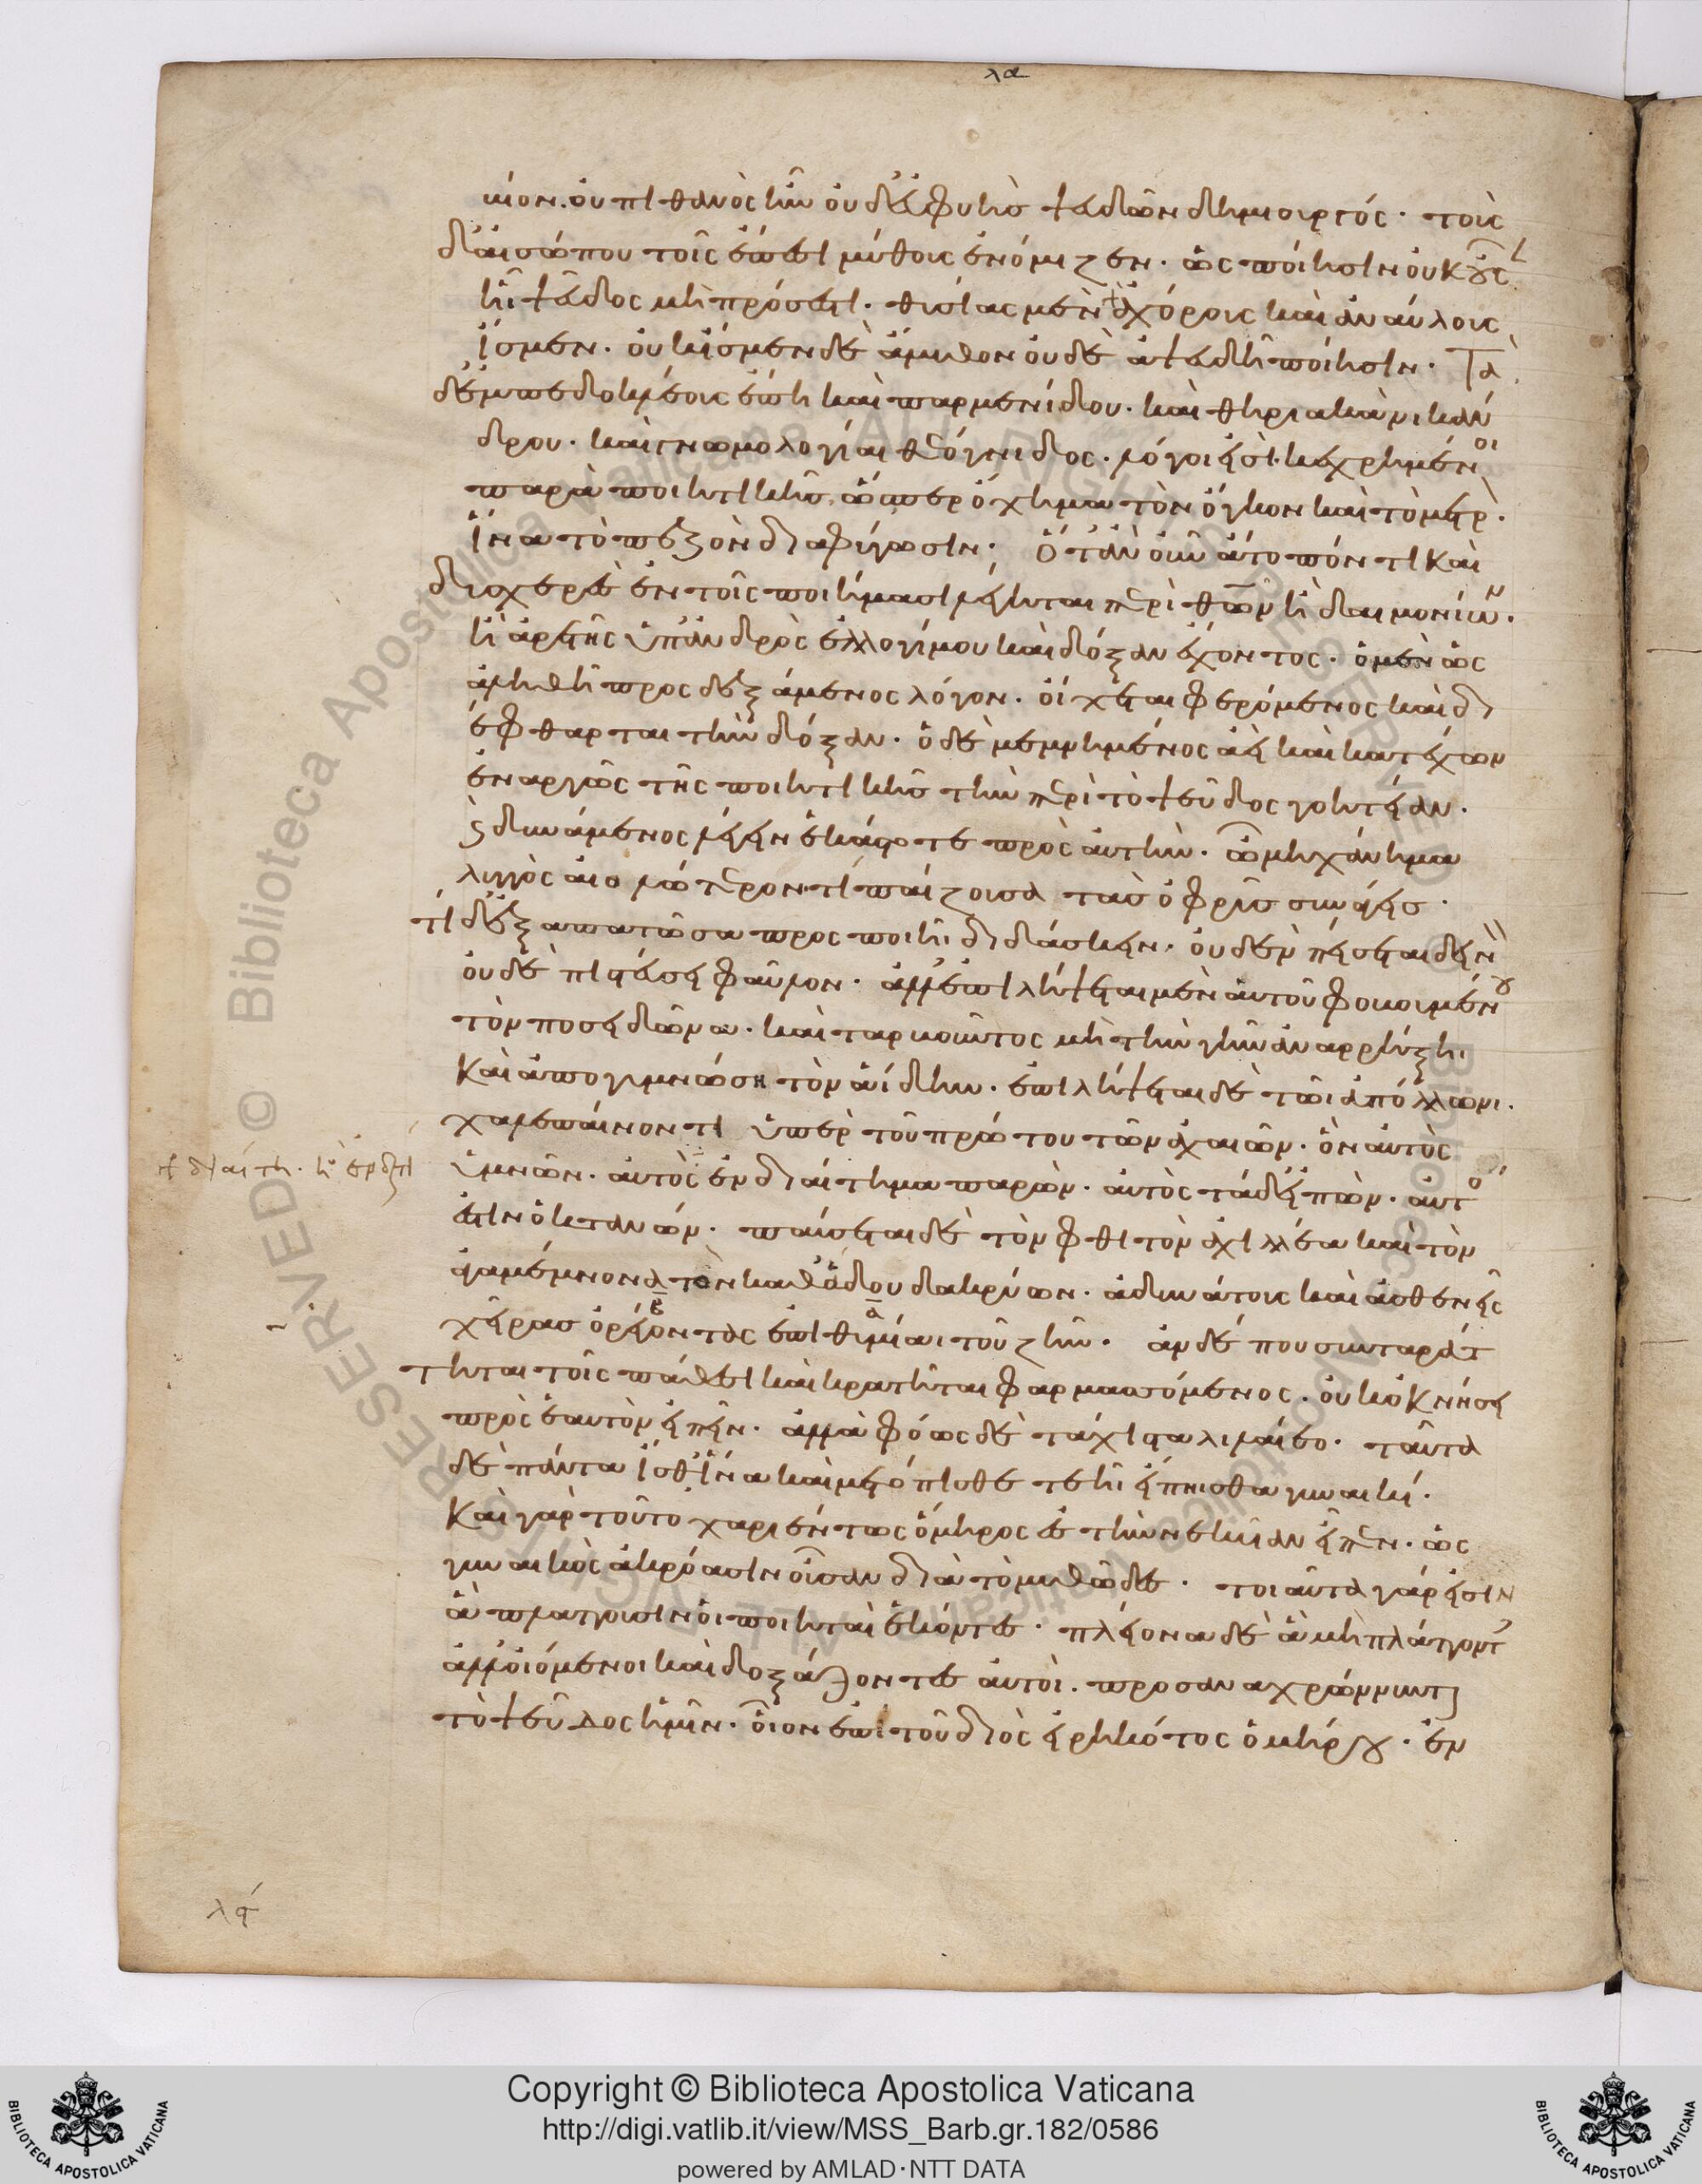 λα
μων. οὐ πιθανὸς ἦν οὐδ' εὐφυὴς ψευδῶν δημιουργός· τοὺς
δ' αἰσώπου τοῖς ἔπεσι μύθους ἐνόμιζεν. ὡς ποίησιν οὐκ οὖσ
ἧι ψεῦδος μὴ πρόσεστι· θυσίας μὲν γὰρ ἀχόρους καὶ ἀναύλους
ἴσμεν. οὐκ ἴσμεν δὲ ἄμυθον οὐδὲ ἀψευδῆ ποίησιν. Τὰ
δ' ἐμπεδοκλέους ἔπη καὶ παρμενίδου. καὶ θηριακὰ νικάν
δρου. καὶ γνωμολογίαι θεόγνιδος. λόγοι εἰσὶ κεχρημένοι
παρὰ ποιητικῆς ὥσπερ ὄχημα τὸν ὄγκον καὶ τὸ μέτρ.
ἵνα τὸ πεζὸν διαφύγωσιν· Ὅταν οὖν ἄτοπόν τι καὶ
δυσχερὲς ἐν τοῖς ποιήμασι λέγηται περὶ θεῶν ἢ δαιμονίων.
ἢ ἀρετῆς ὑπ' ἀνδρὸς ἐλλογίμου καὶ δόξαν ἔχοντος. ὁ μὲν ὡς
ἀληθῆ προσδεξάμενος λόγον. οἴχεται φερόμενος καὶ δι
έφθαρται τὴν δόξαν. ὁ δὲ μεμνημένος ἀεὶ καὶ κατέχων
ἐναργῶς τῆς ποιητικῆς τὴν περὶ τὸ ψεῦδος γοητείαν.
καὶ δυνάμενος λέγειν ἑκάστοτε πρὸς αὐτήν. ὦ μηχάνημα
λυγγὸς αἰολώτερον· τί παίζουσα τὰς ὀφρῦς συνάγεις·
τί δ' ἐξαπατῶσα προσποιῇ διδάσκειν. οὐδὲν πείσεται δεινὸν
οὐδὲ πιστεύσει φαῦλον. ἀλλ' ἐπιλήψεται μὲν αὑτοῦ φοβουμένου
τὸν ποσειδῶνα. καὶ ταρβοῦντος μὴ τὴν γῆν ἀναρρήξῃ
καὶ ἀπογυμνώσῃ τὸν ἀίδην. ἐπιλήψεται δὲ τῶι ἀπόλλωνι.
χαλεπαίνοντι ὑπὲρ τοῦ πρώτου τῶν ἀχαιῶν. ὃν αὐτὸς
ὑμνῶν. αὐτὸς ἐν διαίτημα παρὼν. αὐτὸς τάδ' εἰπὼν. αὐτὸ
ἐστὶν ὁ κτανὼν. παύσεται δὲ τὸν φθιτὸν ἀχιλλέα καὶ τὸν
ἀγαμέμνονα τὸν καθ' ᾅδου δακρύων. ἀδυνάτους καὶ ἀσθενεῖς
χεῖρας ὀρέγοντας ἐπιθυμίαι τοῦ ζῆν. ἂν δέ που συνταράτ
τηται τοῖς πάθεσι καὶ κρατῆται φαρμασσόμενος. οὐκ ὀκνήσει
πρὸς ἑαυτὸν εἰπεῖν. ἀλλὰ φόως δὲ τάχιστα λιλαίεο. ταῦτα
δὲ πάντα ἴσθ' ἵνα καὶ μετόπισθε τεῇ εἴπῃσθα γυναικί.
καὶ γὰρ τοῦτο χαριέντως ὅμηρος ἐς τὴν νεκυίαν εἶπεν. ὡς
γυναικὸς ἀκρόασιν οὖσαν διὰ τὸ μυθῶδες. τοιαῦτα γάρ εἰσιν
ἃ πλάττουσιν οἱ ποιηταὶ ἑκόντες. πλείονα δὲ ἃ μὴ πλάττοντ
ἀλλ' οἰόμενοι καὶ δοξάζοντες αὐτοὶ. προσαναχρώννυνται
τὸ ψεῦδος ἡμῖν. οἷον ἐπὶ τοῦ διὸς εἰρηκότος ὁμήρου. ἐν